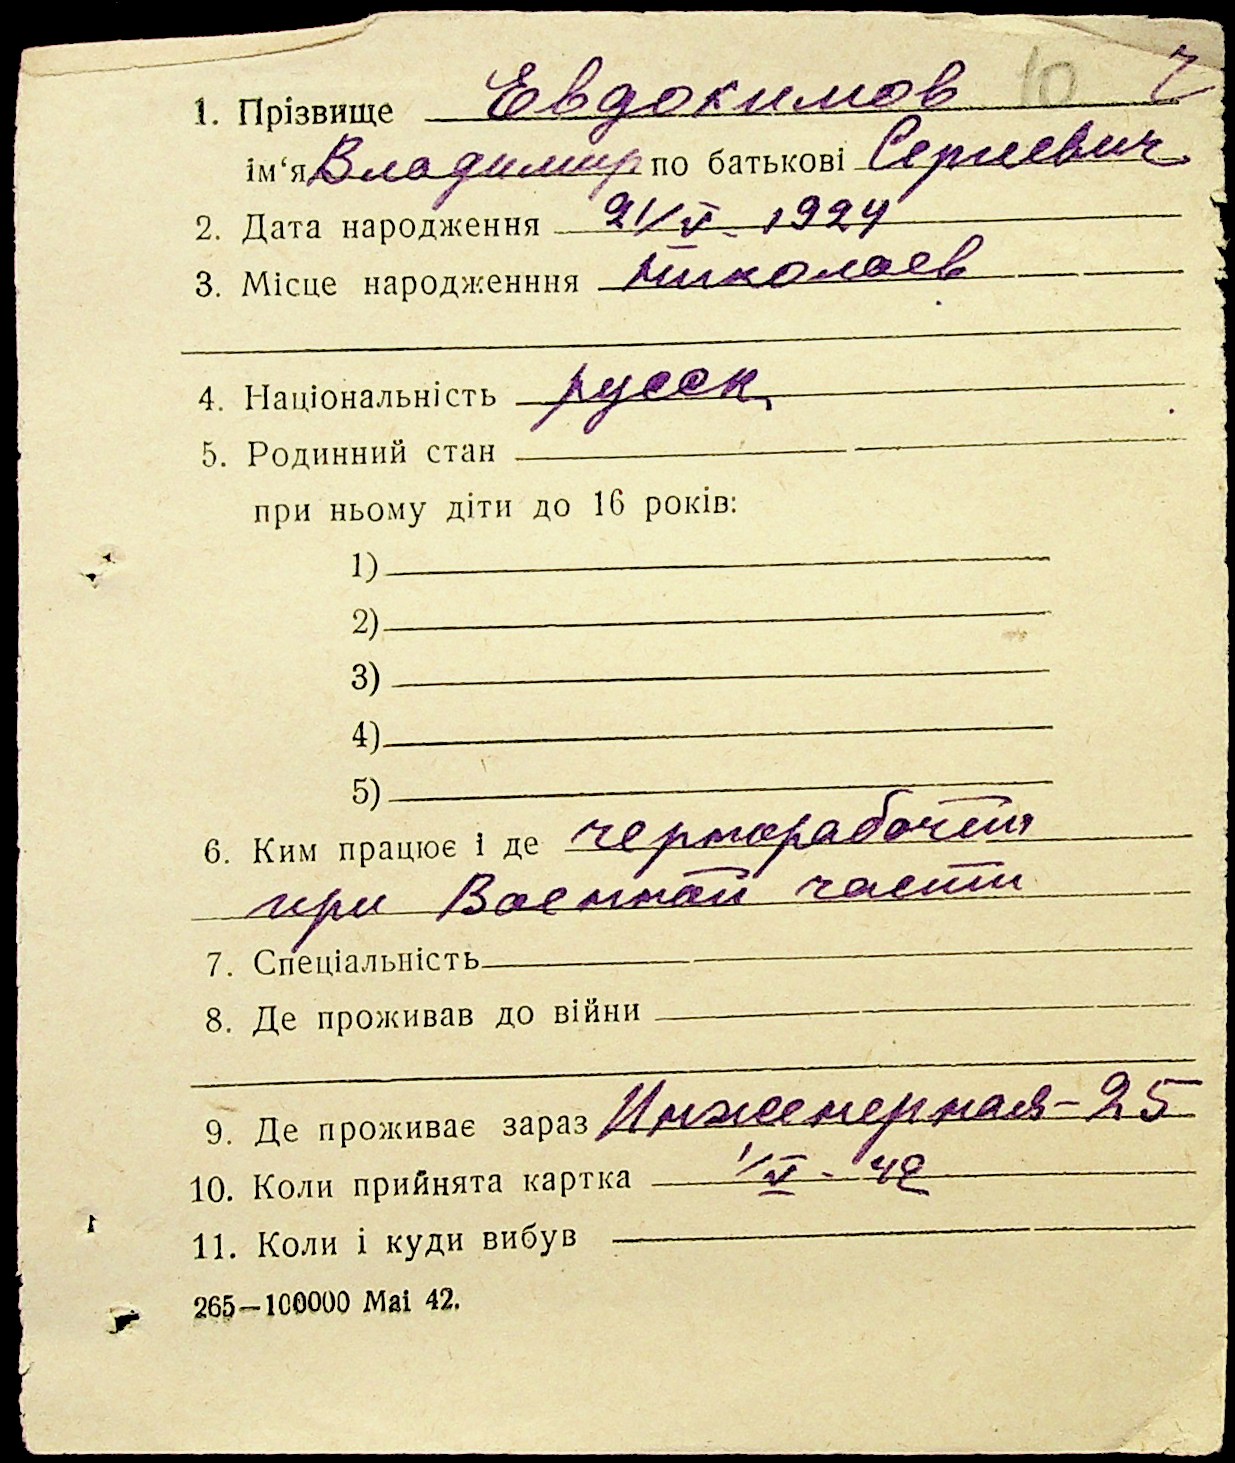 10 ч
1. Прізвище Евдокимов
ім‘я Владимир по батькові Сергиевич
2. Дата народження 21/V - 1924
3. Місце народженння Николаев
4. Національність русск,
5. Родинний стан
при ньому діти до 16 років:
1)
2)
3)
4)
5)
6. Ким працює і де чернорабочий
при Военной части
7. Спеціальність
8. Де проживав до війни
9. Де проживає зараз Инженерная - 25
10. Коли прийнята картка 1/V - 42
11. Коли і куди вибув
265—100000 Mai 42.